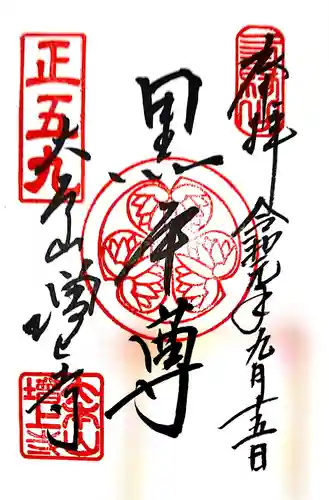 奉拝
令和元年九月十五日
黒本尊
大本山増上寺
正五九